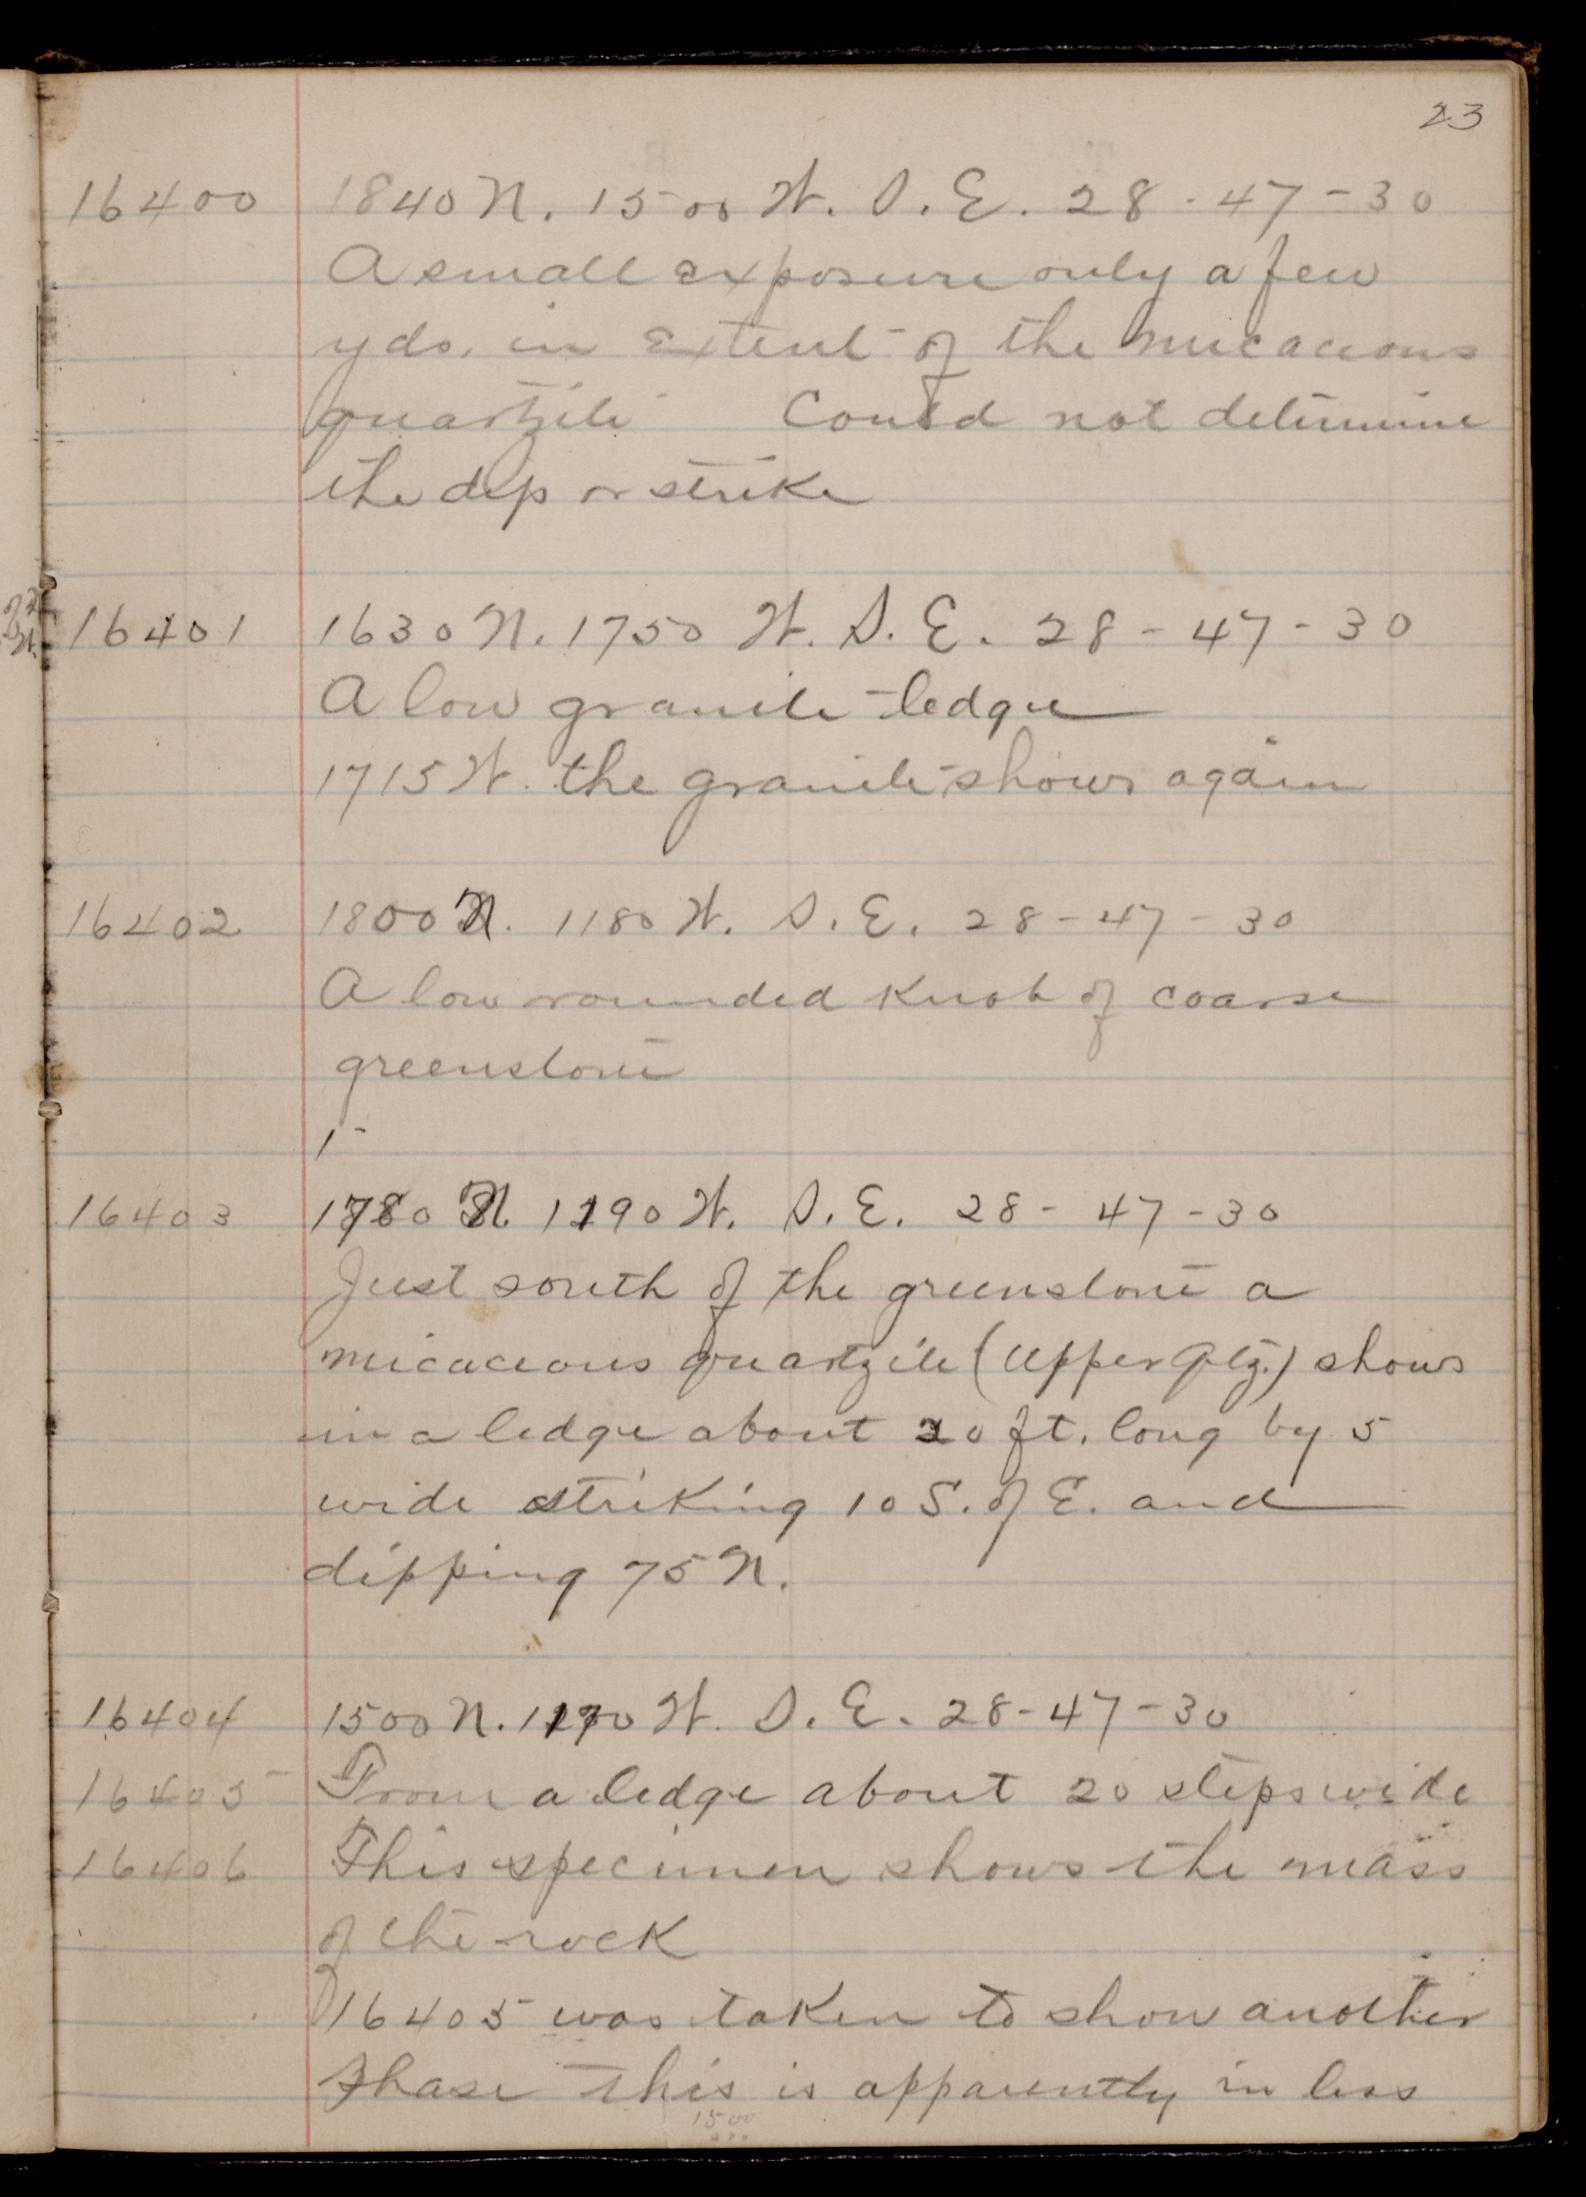 23
16400 1840 N. 1500 W. S. E. 28-47-30
A small exposure only a few
yds. in extent of the micaceous
quartzite Could not determine
the dip or strike
16401 1630 N. 1750 W. S. E. 28-47-30
A low granite ledge
1715 W. the granite shows again
16402 1800 N. 1180 W. S. E. 28-47-30
A low rounded knob of coarse
greenstone
16403 1780 N 1190 W. S. E. 28-47-30
Just south of the greenstone a
micaceous quartzite (Upper Qtz.) shows
in a ledge about 20 ft. long by 5
wide striking 10 S. of E. and
dipping 75 N.
16404 1500 N. 1170 W. S. E. 28-47-30
16405 From a ledge about 20 steps wide
16406 This specimen shows the mass
of the rock
16405 was taken to show another
phase this is apparently in less
1500